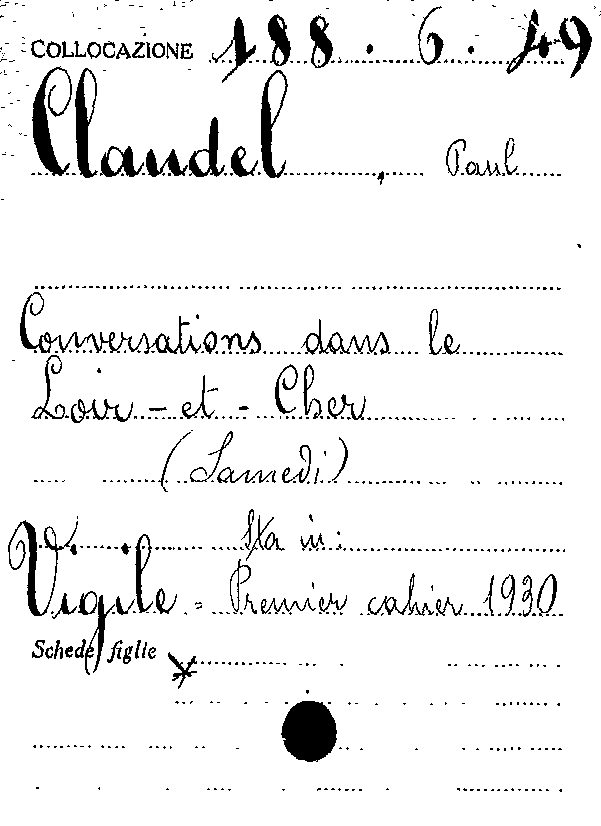 COLLOCAZIONE 188.6.49
Claudel, Paul
Conversations dans le
Loir-et-Cher
(Samedi)
Sta in:
Vigile = Premier cahier 1930
Schede figlie